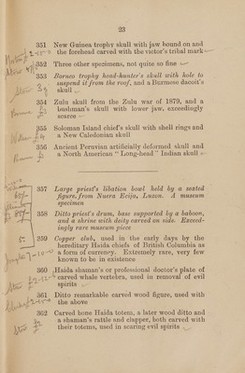 23
351 New Guinea trophy skull with jaw bound on and
the forehead carved with the victor's tribal mark
352 Three other specimens, not quite so fine
353 Borneo trophy head-hunter's skull with hole to
suspend it from the roof, and a Burmese dacoit's
skull
354 Zulu skull from the Zulu war of 1879, and a
bushman's skull with lower jaw, exceedingly
scarce
355 Soloman Island chief's skull with shell rings and
a New Caledonian skull
356 Ancient Peruvian artificially deformed skull and
a North American "Long-head" Indian skull
357 Large priest's libation bowl held by a seated
figure, from Nueva Ecijo, Luzon. A museum
specimen
358 Ditto priest's drum, base supported by a baboon,
and a shrine with deity carved on side. Exceed-
ingly rare museum piece
359 Copper club, used in the early days by the
hereditary Haida chiefs of British Columbia as
a form of currency. Extremely rare, very few
known to be in existence
360 Haida shaman's or professional doctor's plate of
carved whale vertebra, used in removal of evil
spirits
361 Ditto remarkable carved wood figure, used with
the above
362 Carved bone Haida totem, a later wood ditto and
a shaman's rattle and clapper, both carved with
their totems, used in scaring evil spirits